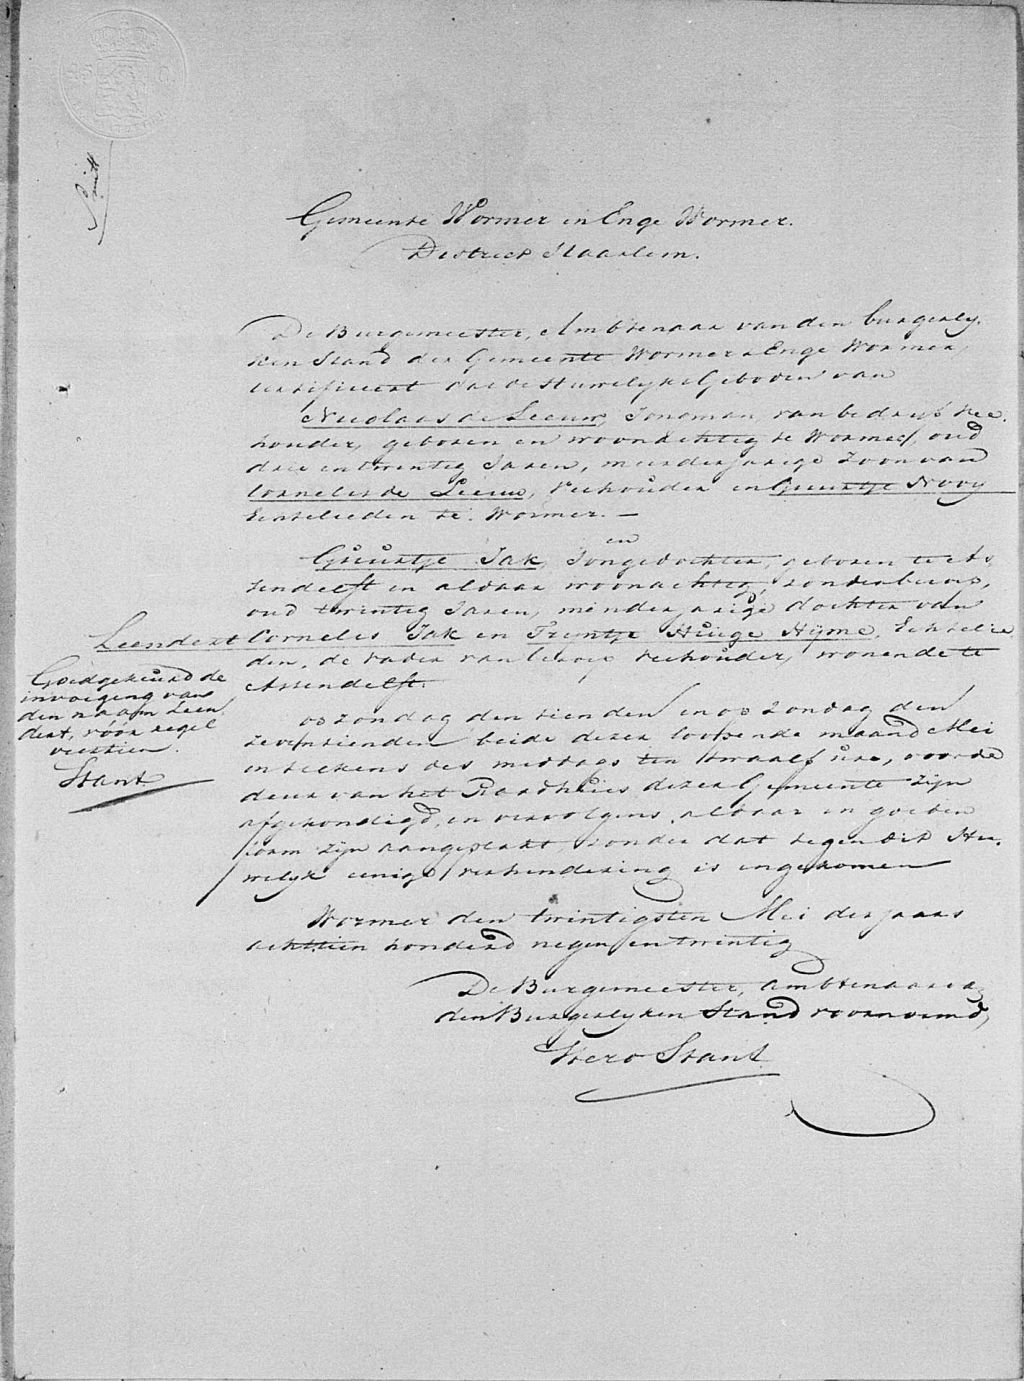 Smit
Gemeente Wormer en Enge Wormer.
District Haarlem.
De Burgemeester, Ambtenaar van den burgerly-
ken Stand der Gemeente Wormer & Enge Wormer,
certificeert dat de Huwelyks Geboden van
Nicolaas de Leeuw, Jongman, van bedryf Vee-
houder, geboren en woonachtig te Wormer, oud
drie en twintig Jaren, meerderjarige Zoon van
Cornelis de Leeuw, Veehouder en Guurtje Nooy
Echtelieden te Wormer. —
en
Guurtje Jak, Jongedochter, geboren te As-
sendelft en aldaar woonachtig, zonder beroep,
oud twintig Jaren, minderjarige dochter van
Leendert Cornelis Jak en Tryntje Huige Hijme, Echtelie-
den, de vader van beroep Veehouder, wonende te
Assendelft.
Goedgekeurd de
invoeging van
den naam Leen-
dert, vóór regel
veertien.
Stant
op zondag den tienden en op zondag den
zeventienden beide dezer loopende maand Mei
en telkens des middags ten twaalf ure, voor de
deur van het Raadhuis dezer Gemeente zijn
afgekondigd, en vervolgens, aldaar in goeden
form zijn aangeplakt, zonder dat tegen dit Hu-
welyk eenige verhindering is ingekomen
Wormer den twintigsten Mei des jaars
achttien honderd negen en twintig
De Burgemeester, Ambtenaar va
den Burgerlyken Stand voornoemd,
Stant